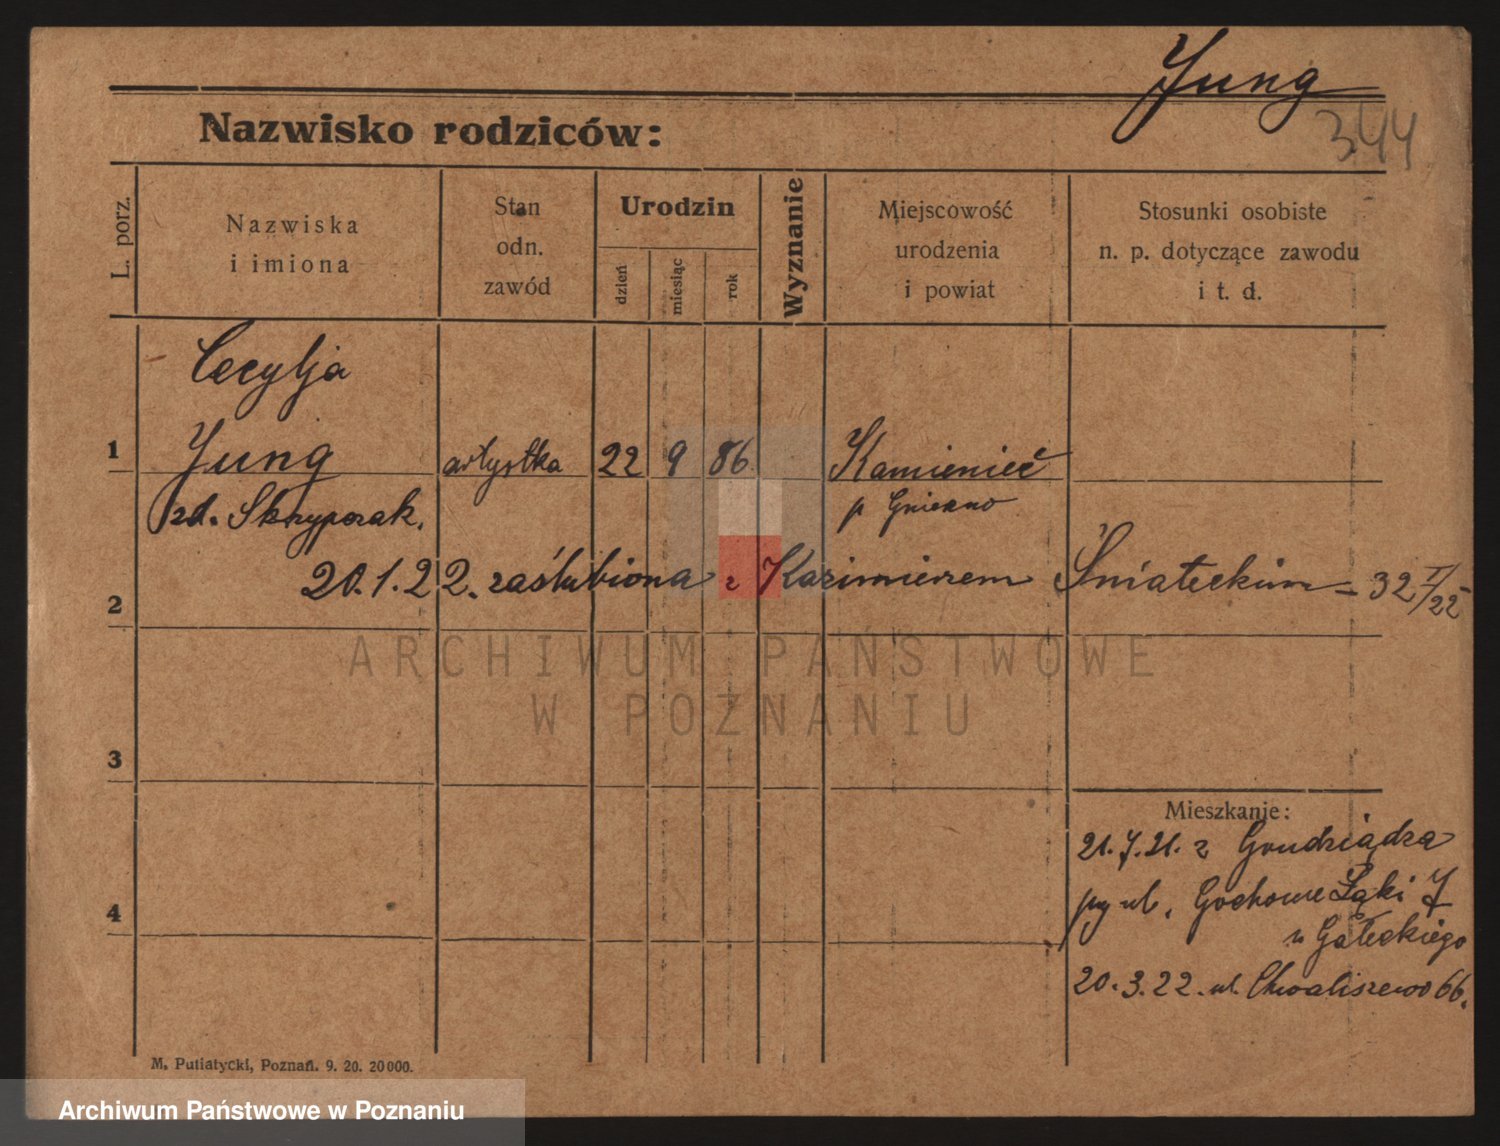 Jung
344
Nazwisko rodziców:
L. porz.
Nazwiska
i imiona
Stan
odn.
zawód
Urodzin
dzień
miesiąc
rok
Wyznanie
Miejscowość
urodzenia
i powiat
Stosunki osobiste
n. p. dotyczące zawodu
i t. d.
Cecylja
1 Jung artystka 22 9 86 Kamienieć
zd. Skrypczak. p Gniezno
2 20.1.22. zaślubiona z Kazimierzem Śniateckim – 32 I/22
ARCHIWUM PAŃSTWOWE
W POZNANIU
3
Mieszkanie:
21.7.21. z Grudziądza
4 przy ul. Grochowe Łąki 7
u Gałeckiego
20.3.22. ul. Chwaliszewo 66.
M. Putiatycki, Poznań. 9. 20. 20000.
Archiwum Państwowe w Poznaniu